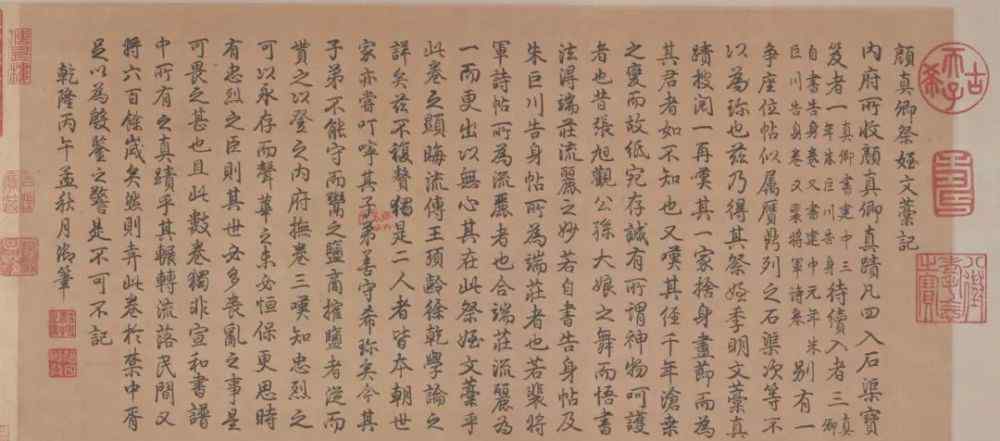 顏真卿祭姪文藁記
內府所收顏真卿真蹟凡四入石渠寶
笈者一真卿書建中三年朱巨川告身待續入者三真卿
自書告身卷又書建中元年朱巨川告身卷又裴將軍詩卷別有一
爭座位帖似属贋鼎列之石渠次等不
以為珎也茲乃得其祭姪季明文藁真
蹟披閱一再嘆其一家捨身盡節而為
其君者如不知也又嘆其徑千年滄桒
之變而故紙宛存誠有所謂神物呵護
者也昔張旭觀公孫大娘之舞而悟書
法得端莊流麗之妙若自書告身帖及
朱巨川告身帖所為端莊者也若裴將
軍詩帖所為流麗者也合端莊流麗為
一而更出以無心其在此祭姪文藁乎
此卷之顯晦流傳王頊齡徐乾學論之
詳矣茲不複贅獨是二人者皆本朝世
家亦嘗叮嚀其子弟善守希珎矣今其
子弟不能守而鬻之鹽商搉鹽者從而
貲之以登之內府撫卷三嘆知忠烈之
可以永存而聲華之未必恒保更思時
有忠烈之臣則其世必多喪亂之事是
可畏之甚也且此數卷獨非宣和書譜
中所有之真蹟乎其輾轉流落民間又
將六百餘歲矣然則弆此卷於禁中胥
足以為殷鑒之警是不可不記
乾隆丙午孟秋月御筆
古希天子
八徵耄念之寶